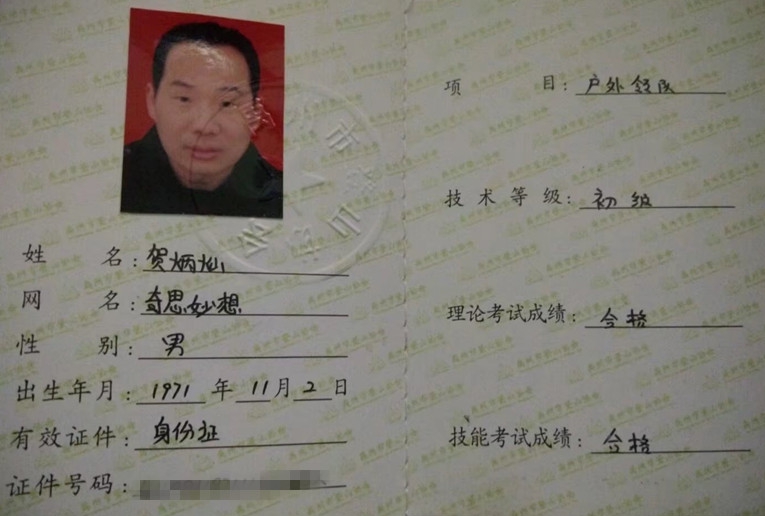 姓 名：贺炳灿
网 名：奇思妙想
性 别：男
出生年月：1971 年 11 月 2 日
有效证件：身份证
证件号码：
项 目：户外领队
技 术 等 级：初级
理论考试成绩：合格
技能考试成绩：合格